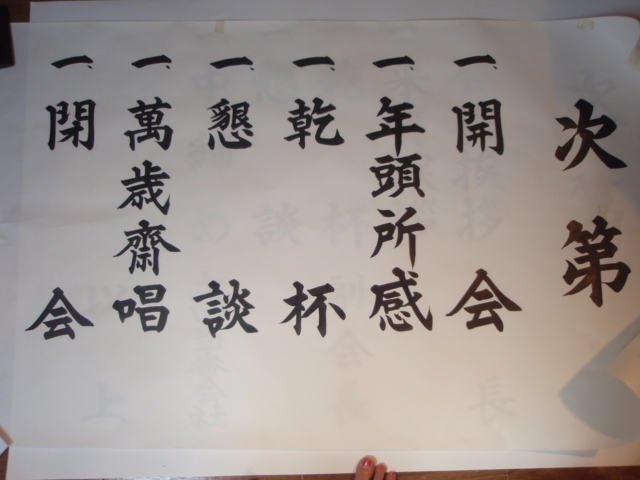 次第
一、開会
一、年頭所感
一、乾杯
一、懇談
一、萬歳齋唱
一、閉会